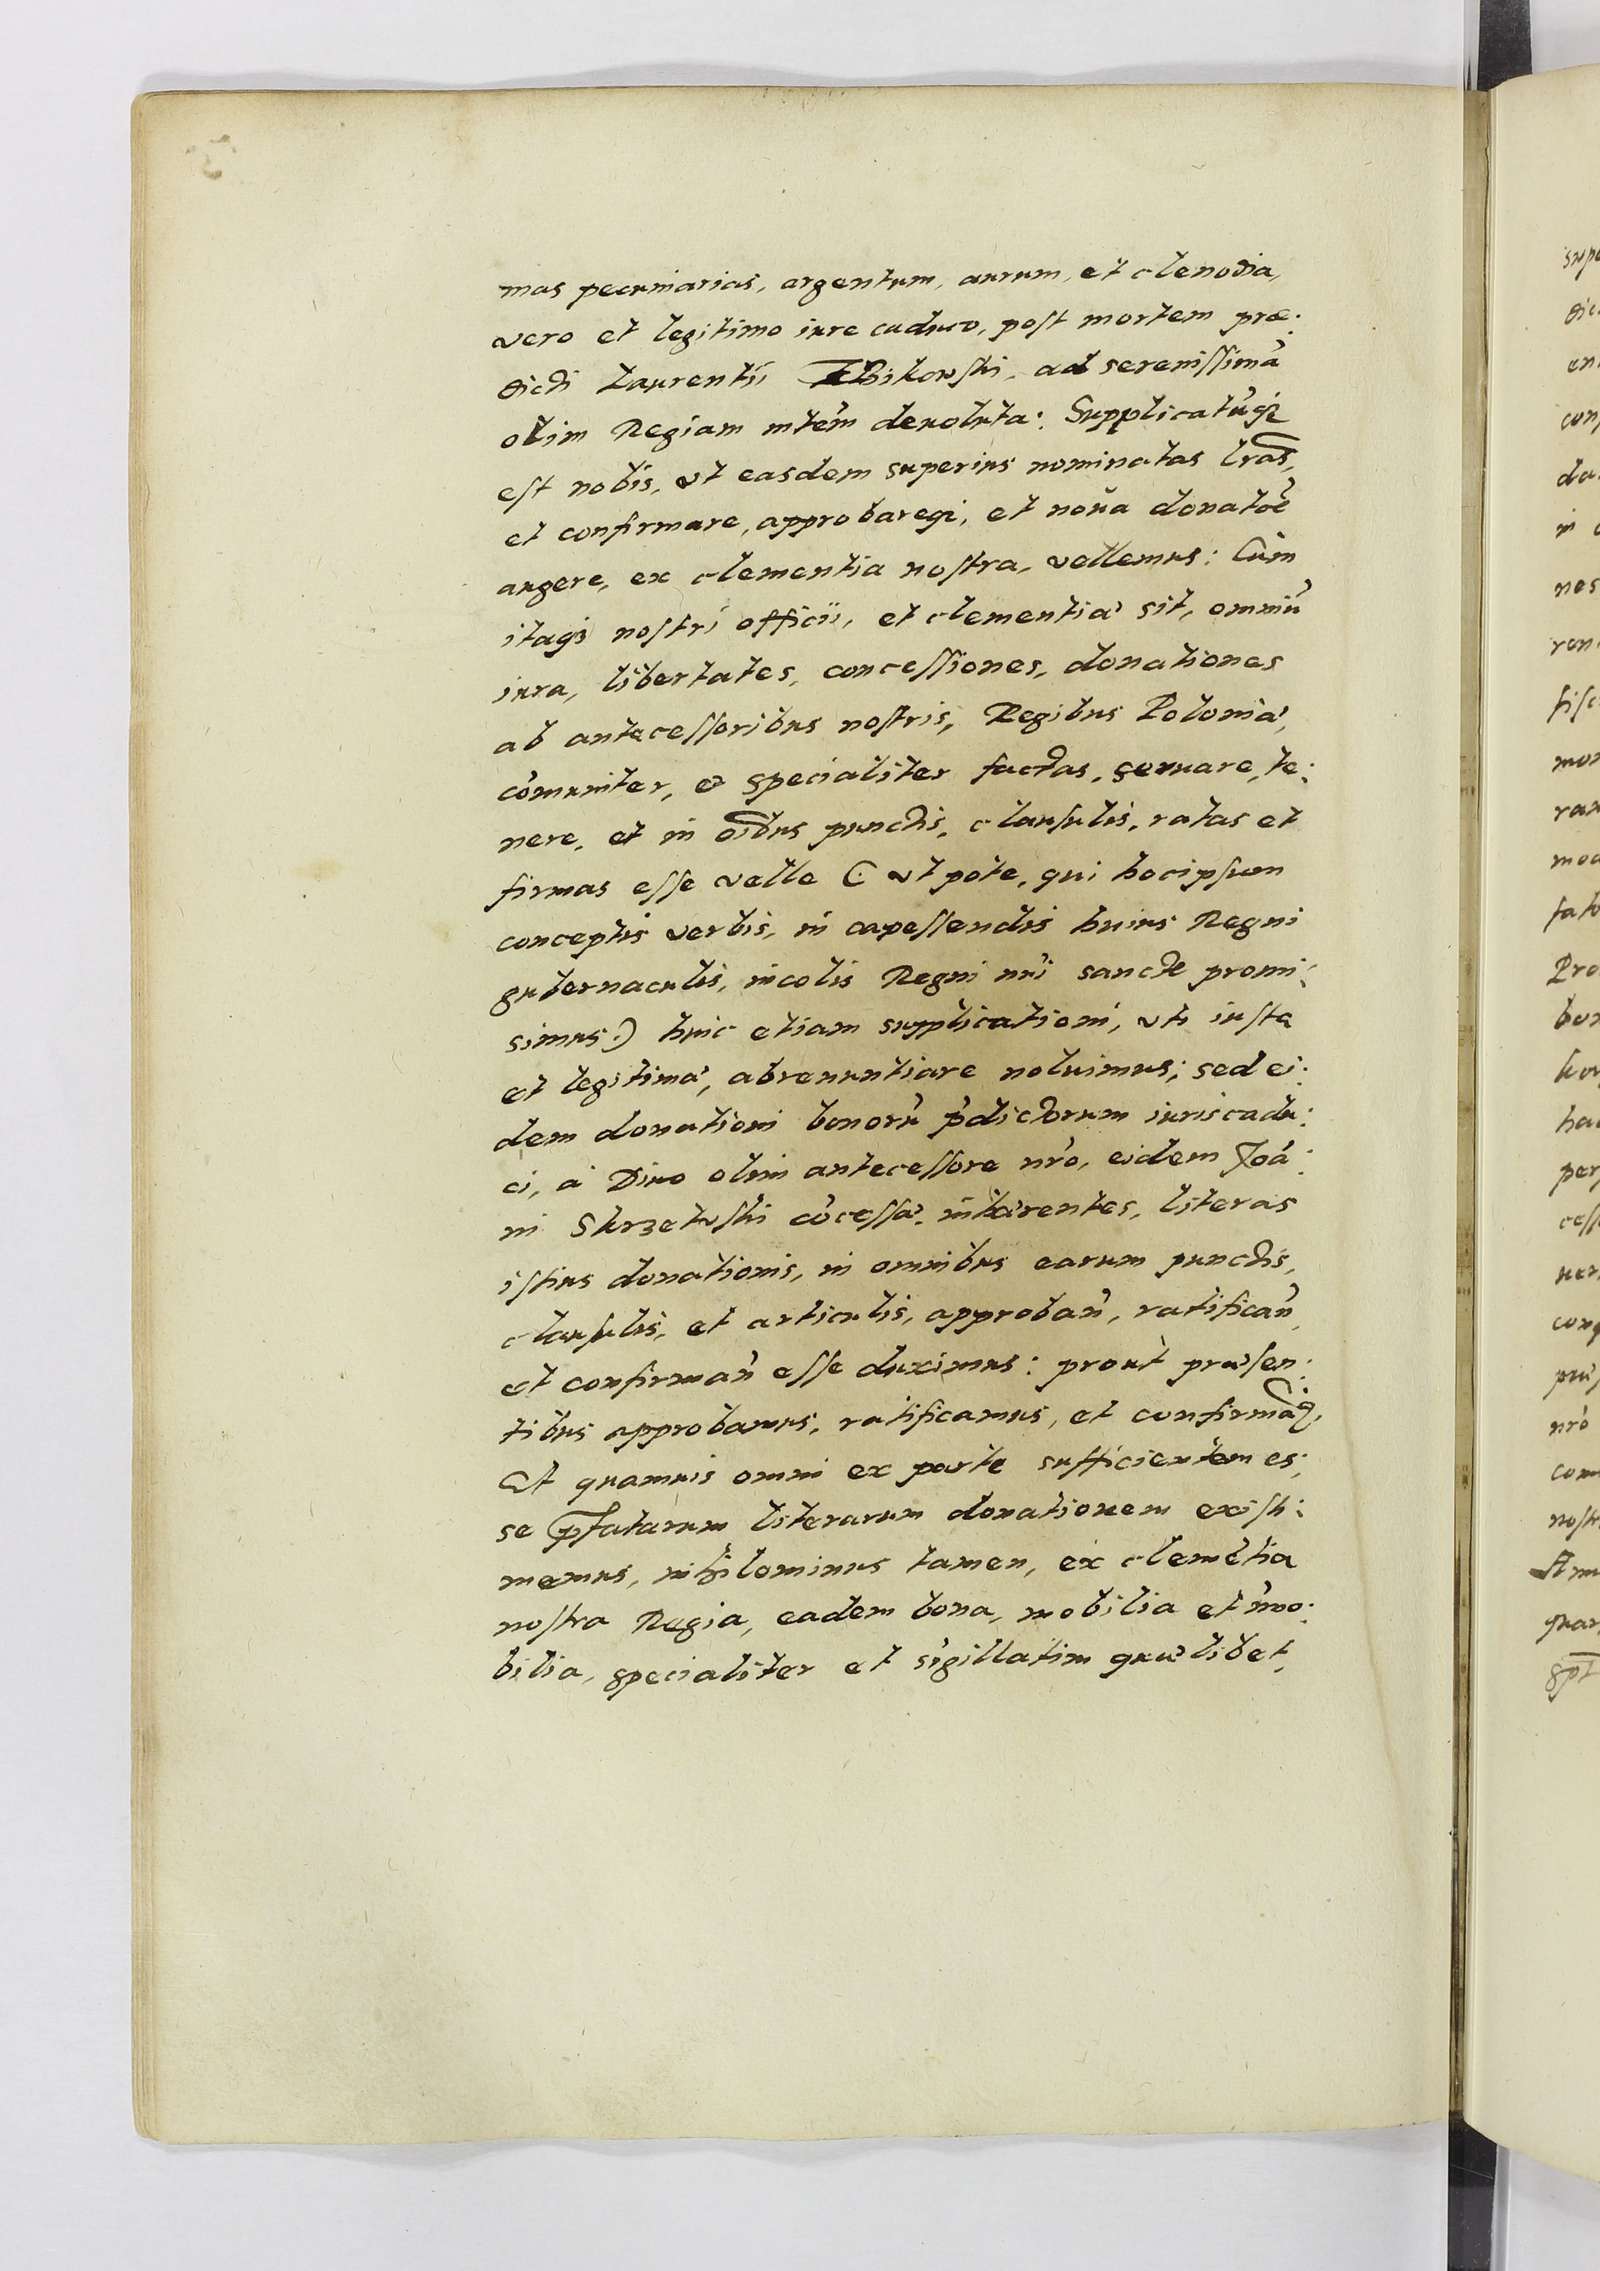 mas pecuniarias, argentum, aurum, et clenodia,
vero et legitimo iure caduco, post mortem præ:
dicti Laurentii Bikowski, ad serenissimã
olim Regiam mtem̃ deuoluta: Supplicatũq3
est nobis, vt easdem superius nominatas lr̃as,
et confirmare, approbareq3, et noũa donatõe
augere, ex clementia nostra, vellemus: Cùm
itaq3 nostri officii, et clementiæ sit, omniũ
iura, libertates, concessiones, donationes
ab antecessoribus nostris, Regibus Poloniæ,
cõmuniter, et specialiter factas, seruare, te:
nere, et in oĩbus punctis, clausulis, ratas et
firmas esse velle (: vt pote, qui hocipsum
conceptis verbis, in capessendis huius Regni
gubernaculis, incolis Regni nr̃i sancte promi:
simus:) huic etiam supplicationi, vti iustæ
et legitimæ, abrenuntiare noluimus; sed ei:
dem donationi bonorũ p̃dictorum iuris cadu:
ci, à Diuo olim antecessore nr̃o, eidem Joã:
ni Skrzetuski cõcessæ, inhærentes, literas
istius donationis, in omnibus earum punctis,
clausulis, et articulis, approbañ, ratificañ,
et confirmañ esse duximus: prout præsen:
tibus approbamus, ratificamus, et confirmãq3.
Et quamuis omni ex parte sufficientem es:
se p̃fatarum literarum donationem existi:
memus, nihilominus tamen, ex clemẽtia
nostra Regia, eadem bona, mobilia et im̃o:
bilia, specialiter et sigillatim quælibet,